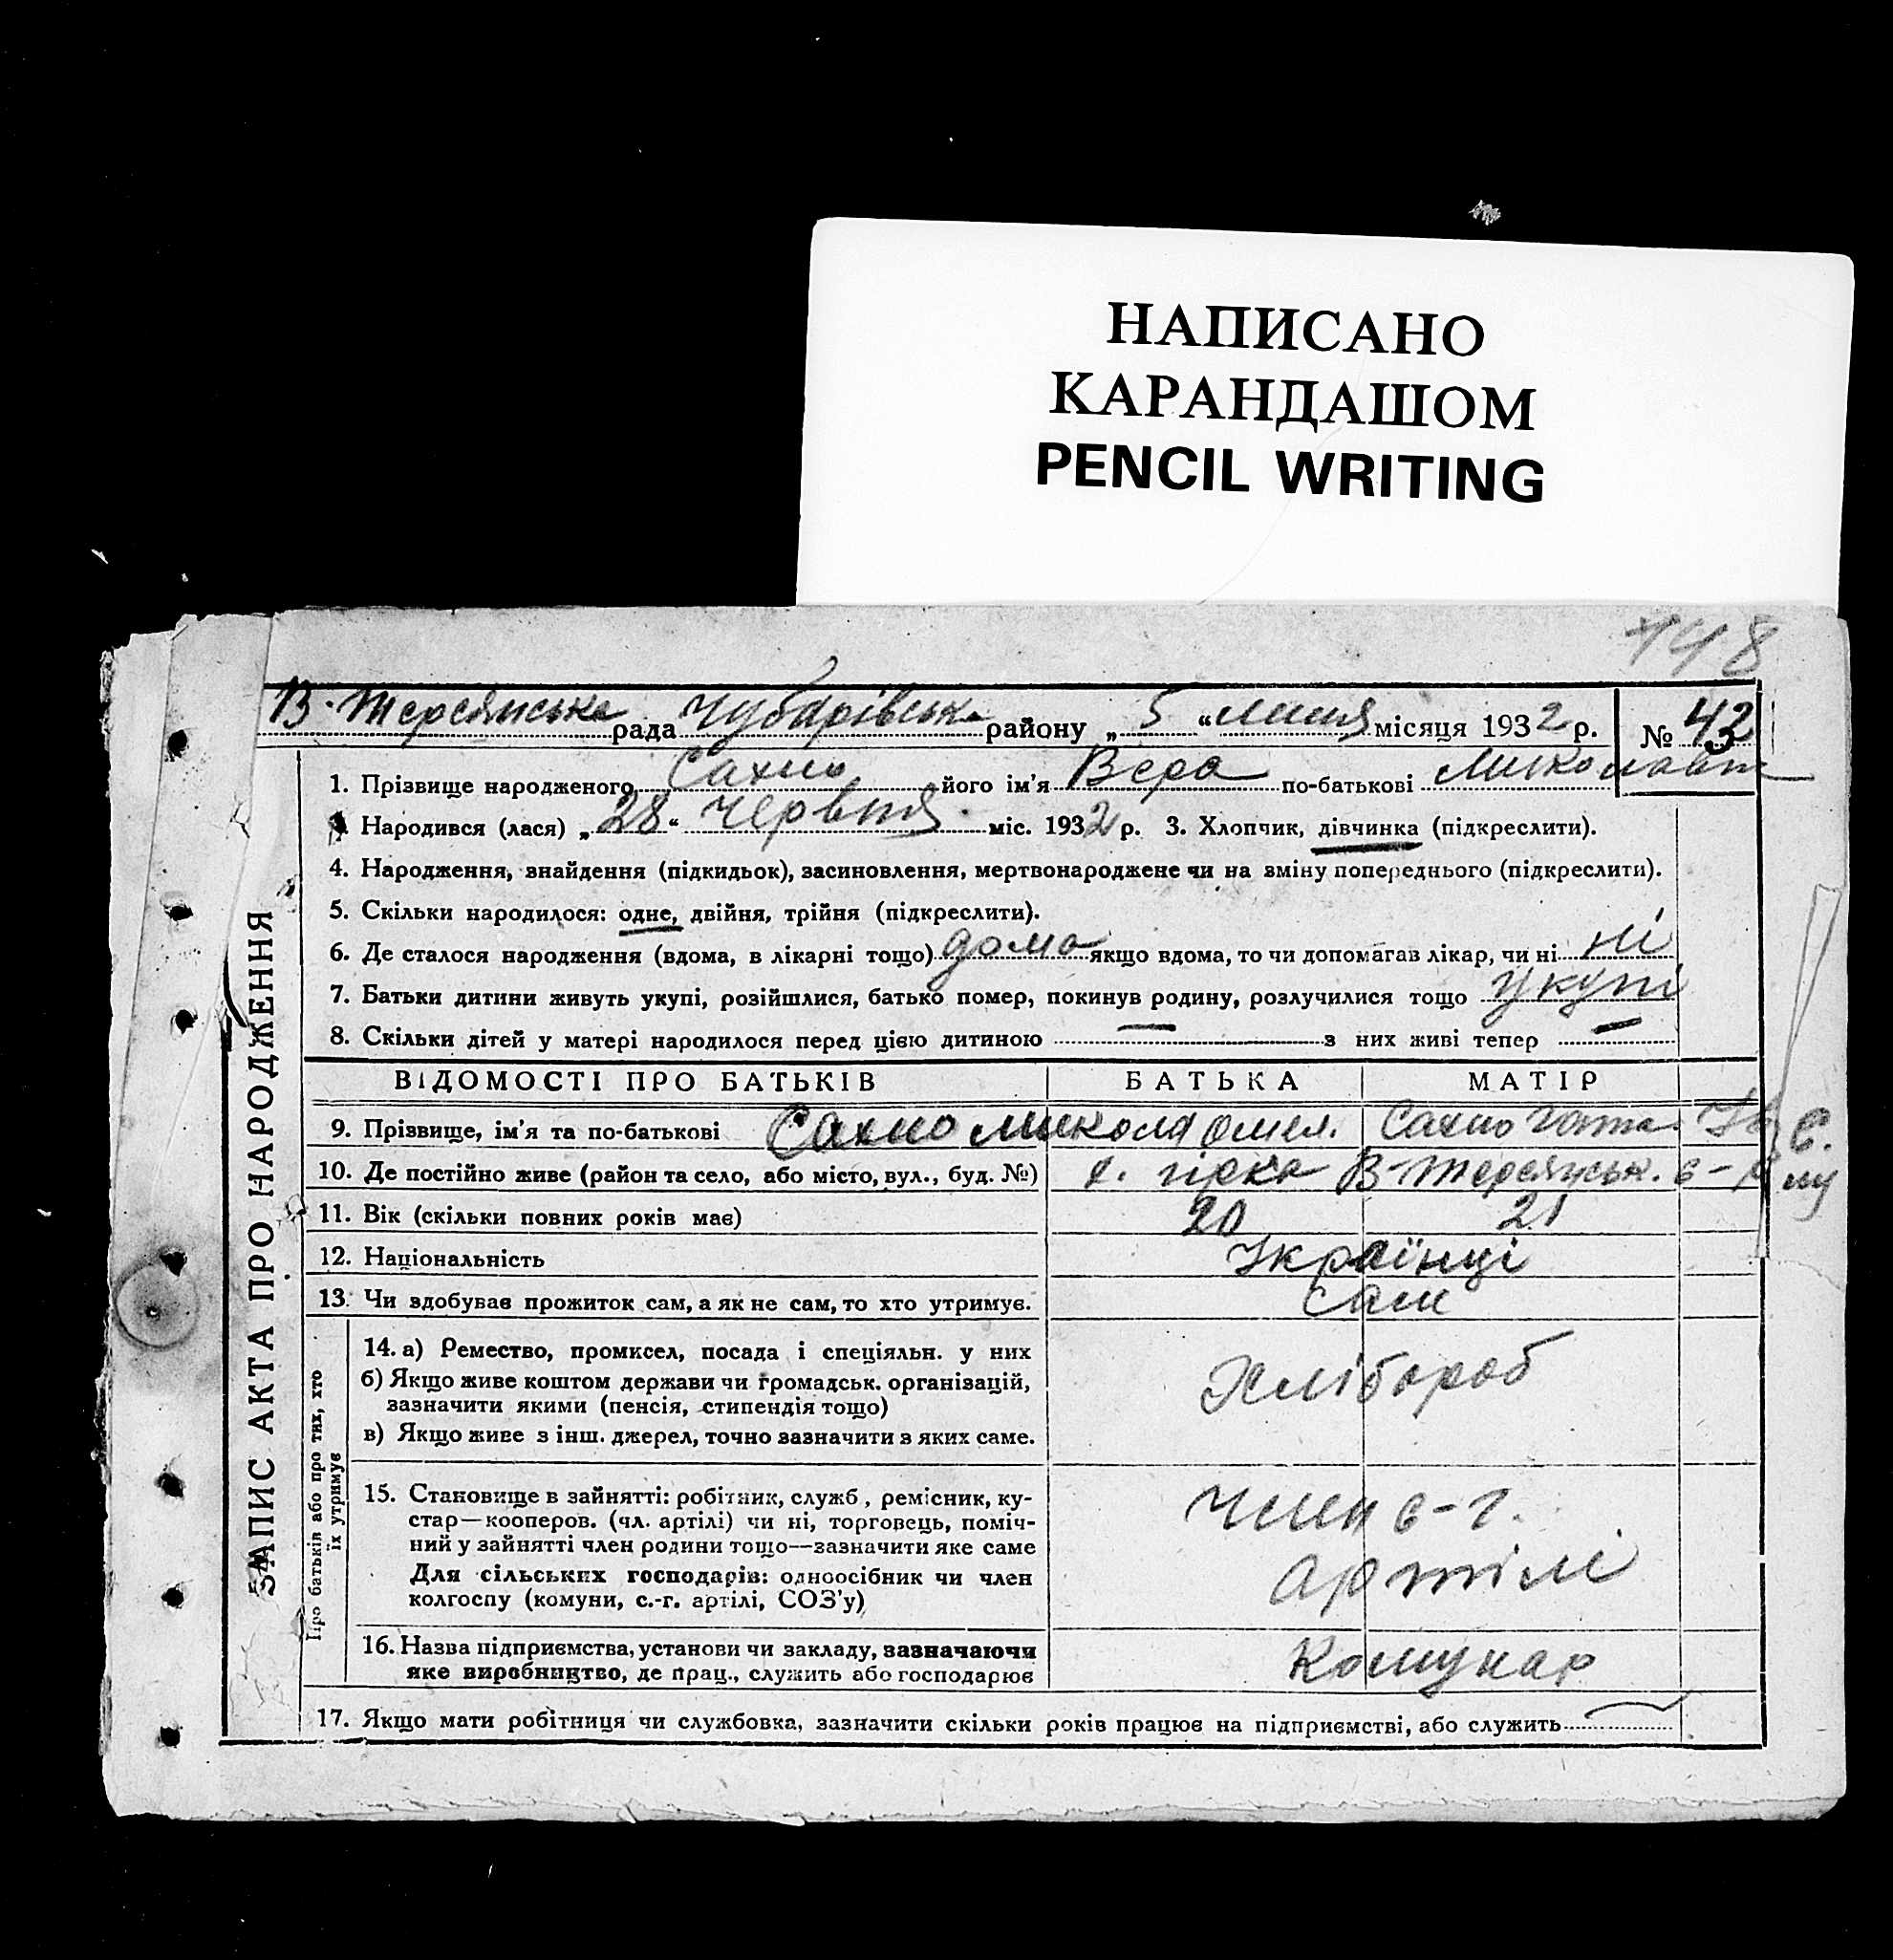 НАПИСАНО
КАРАНДАШОМ
PENCIL WRITING
148
В-Терсянська рада Чубарівськ. району „ 5 “ липня місяця 1932 р. № 42
1. Прізвище народженого Сахно його ім'я Вера по-батькові Миколавн
Народився (лася) „ 28 “ червня міс. 1932 р. 3. Хлопчик, дівчинка (підкреслити).
4. Народження, знайдення (підкидьок), засиновлення, мертвонароджене чи на зміну попереднього (підкреслити).
5. Скільки народилося: одне, двійня, трійня (підкреслити).
6. Де сталося народження (вдома, в лікарні тощо) дома якщо вдома, то чи допомагав лікар, чи ні ні
7. Батьки дитини живуть укупі, розійшлися, батько помер, покинув родину, розлучилися тощо укупі
8. Скільки дітей у матері народилося перед цією дитиною — з них живі тепер —
ЗАПИС АКТА ПРО НАРОДЖЕННЯ
ВІДОМОСТІ ПРО БАТЬКІВ БАТЬКА МАТІР
9. Прізвище, ім'я та по-батькові Сахно Микола Омел. Сахно
10. Де постійно живе (район та село, або місто, вул., буд. №) В-Терсянськ.
11. Вік (скільки повних років має) 20 21
12. Національність Українці
13. Чи здобував прожиток сам, а як не сам, то хто утримує. сам
Про батьків або про тих, хто
їх утримує
14. а) Ремество, промисел, посада і спеціяльн. у них
б) Якщо живе коштом держави чи громадськ. організацій,
зазначити якими (пенсія, стипендія тощо)
в) Якщо живе з інш. джерел, точно зазначити з яких саме.
Хлібороб
15. Становище в зайнятті: робітник, служб., ремісник, ку-
стар—кооперов. (чл. артілі) чи ні, торговець, поміч-
ний у зайнятті член родини тощо—зазначити яке саме
Для сільських господарів: одноосібник чи член
колгоспу (комуни, с.-г. артілі, СОЗ'у)
член с-г.
артілі
16. Назва підприємства, установи чи закладу, зазначаючи
яке виробництво, де прац., служить або господарює
Комунар
17. Якщо мати робітниця чи службовка, зазначити скільки років працює на підприємстві, або служить —